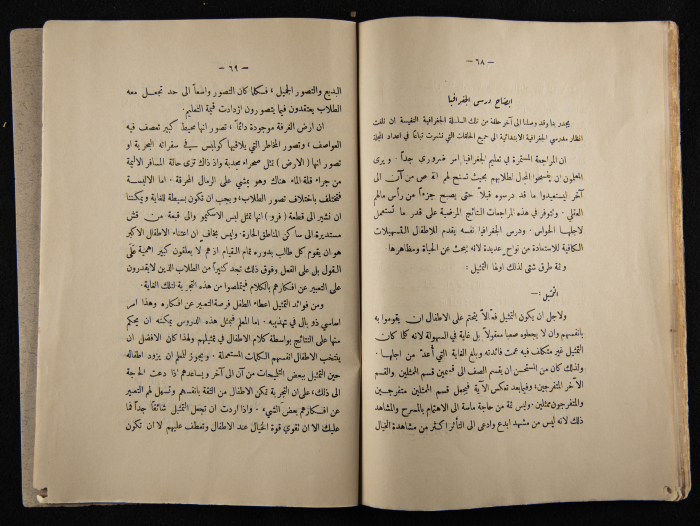 — ٦٨ —
ايضاح درس الجغرافيا
يجدر بنا وقد وصلنا الى آخر حلقة من تلك السلسلة الجغرافية النفيسة ان نلفت
انظار مدرسي الجغرافية الابتدائية الى جميع الحلقات التي نشرت تباعاً في اعداد المجلة
ان المراجعة المستمرة في تعليم الجغرافيا امر ضروري جداً. ويرى
المعلمون ان يفسحوا المجال لطلابهم بحيث تسنح لهم الفرص من آن الى
آخر ليستعيدوا ما قد درسوه قبلاً حتى يصبح جزءاً من رأس مالهم
العقلي. وتتوفر في هذه المراجعات النتائج المرضية على قدر ما تستعمل
لاجلها الحواس. ودرس الجغرافيا نفسه يقدم للاطفال التسهيلات
الكافية للاستعادة من نواحٍ عديدة لانه يبحث عن الحياة ومظاهرها.
وثمة طرق شتى لذلك اولها التمثيل:
التمثيل:—
ولاجل ان يكون التمثيل فعّالاً يتحتم على الاطفال ان يقوموا به
بانفسهم وان لا يجعلوه صعبا معقولاً بل غاية في السهولة لانه كلما كان
التمثيل غير متكلف فيه عمت فائدته وبلغ الغاية التي أُعد من اجلها.
ولذلك كان من المستحسن ان يقسم الصف الى قسمين قسم الممثلين والقسم
الآخر المتفرجين، وفيما بعد تعكس الآية فيجعل قسم الممثلين متفرجين
والمتفرجون ممثلين. وليس ثمة من حاجة ماسة الى الاهتمام بالمسرح والمشاهد
ذلك لانه ليس من مشهد ابدع وادعى الى التأثر اكثر من مشاهدة الخيال
— ٦٩ —
البديع والتصور الجميل، فكلما كان التصور واسعاً الى حد تجعل معه
الطلاب يعتقدون فيما يتصورون ازدادت قيمة التعليم.
ان ارض الغرفة موجودة دائماً، تصور انها محيط كبير تعصف فيه
العواصف، وتصور المخاطر التي يلاقيها كولمبس في سفراته البحرية او
تصور انها (الارض) تمثل صحراء مجدبة واذ ذاك ترى حالة المسافر الاليمة
من جراء قلة الماء هناك وهو يمشي على الرمال المحرقة، اما الالبسة
فتختلف باختلاف تصور الطلاب؛ ويجب ان تكون بسيطة للغاية ويمكننا
ان نشير الى قطعة (فرو) انها تمثل لبس الاسكيمو والى قبعة من قش
مستديرة الى ساكن المناطق الحارة. وليس بخافٍ ان اعتناء الاطفال الاكبر
هو ان يقوم كل طالب بدوره تمام القيام اذ هم لا يعلقون كبير اهمية على
القول بل على الفعل وفوق ذلك تجد كثيراً من الطلاب الذين لا يقدرون
على التعبير عن افكارهم بالكلام فيتملصوا من هذه التجربة لتلك الغاية.
ومن فوائد التمثيل اعطاء الطفل فرصة التعبير عن افكاره وهذا امر
اساسي ذو بال في تهذيبه. اما المعلم فبمثل هذه الدروس يمكنه ان يحكم
منها على النتائج بواسطة كلام الاطفال في تمثيلهم ولهذا كان الافضل ان
ينتخب الاطفال انفسهم الكلمات المستعملة. ويجوز للمعلم ان يزود اطفاله
حين التمثيل ببعض التلميحات من آن الى آخر ويساعدهم اذا دعت الحاجة
الى ذلك، على ان التجربة تمكن الاطفال من الثقة بانفسهم وتسهل لهم التعبير
عن افكارهم بعض الشيء. واذا اردت ان تجعل التمثيل شائقاً جداً فما
عليك الا ان تقوي قوة الخيال عند الاطفال وتعطف عليهم لا ان تكون